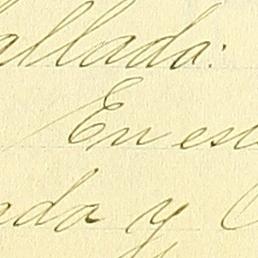 allada:
En est
ada y